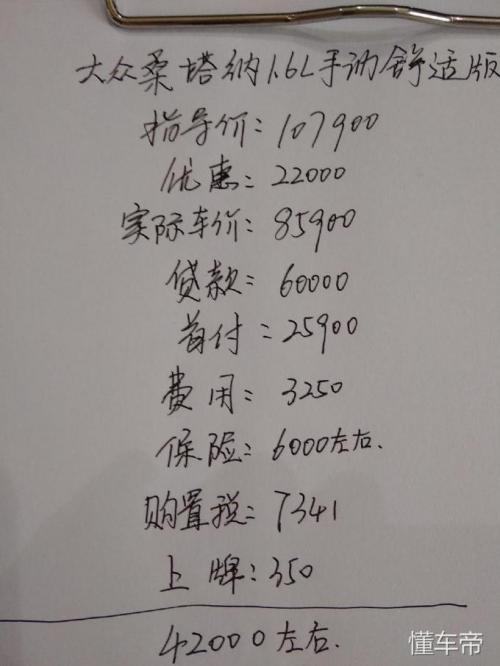 大众桑塔纳1.6L手动舒适版
指导价：107900
优惠：22000
实际车价：85900
贷款：60000
首付：25900
费用：3250
保险：6000左右.
购置税：7341
上牌：350
42000左右.
懂车帝